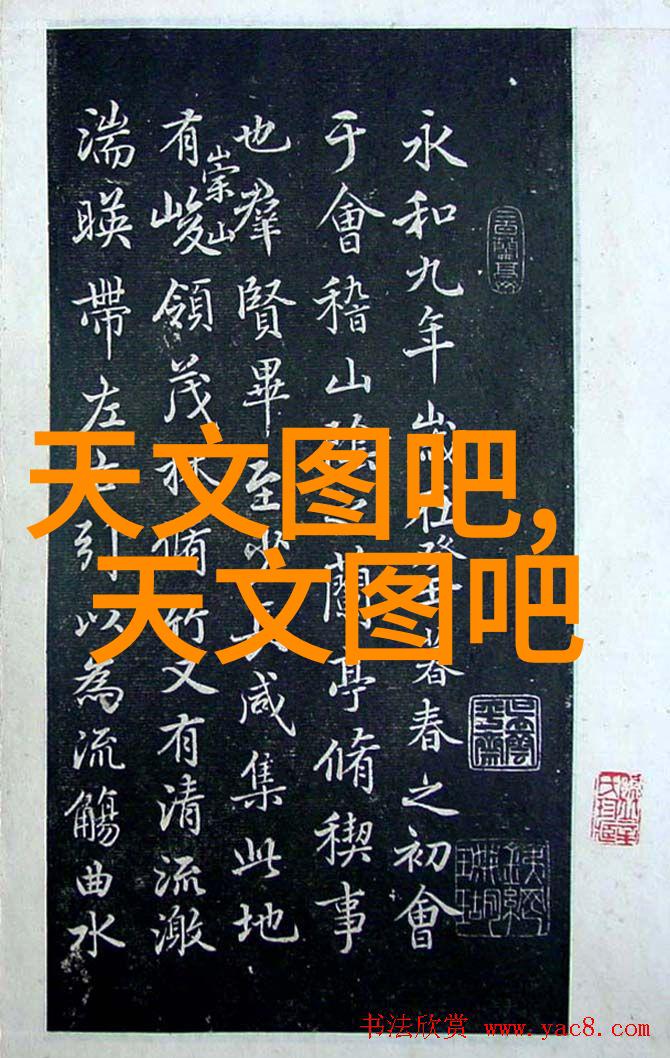 永和九年歲在癸丑暮春之初會
于會稽山陰之蘭亭脩稧事
也羣賢畢至少長咸集此地
有崇山峻領茂林脩竹又有清流激
湍暎帶左右引以為流觴曲水
天文图吧,
天文图吧
书法欣赏 www.yac8.com